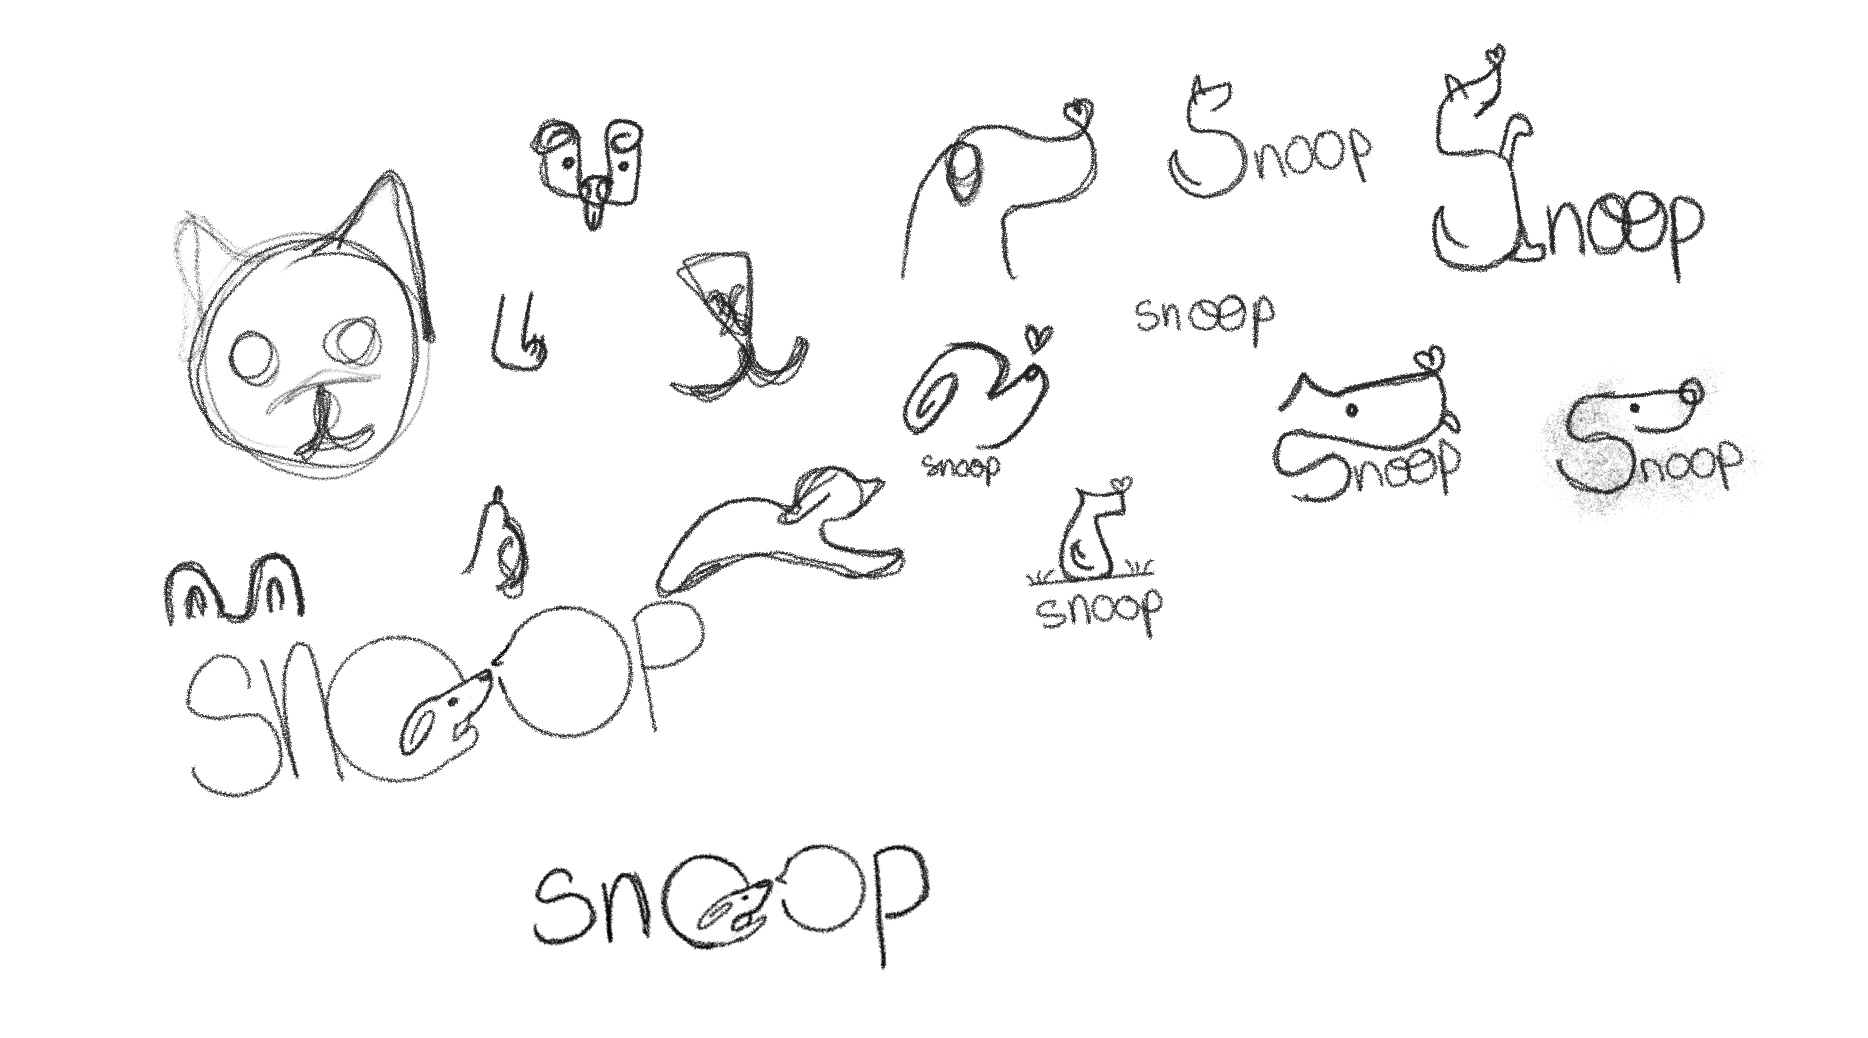 Snoop
Snoop
snoop
snoop
Snoop
Snoop
snoop
snoop
snoop